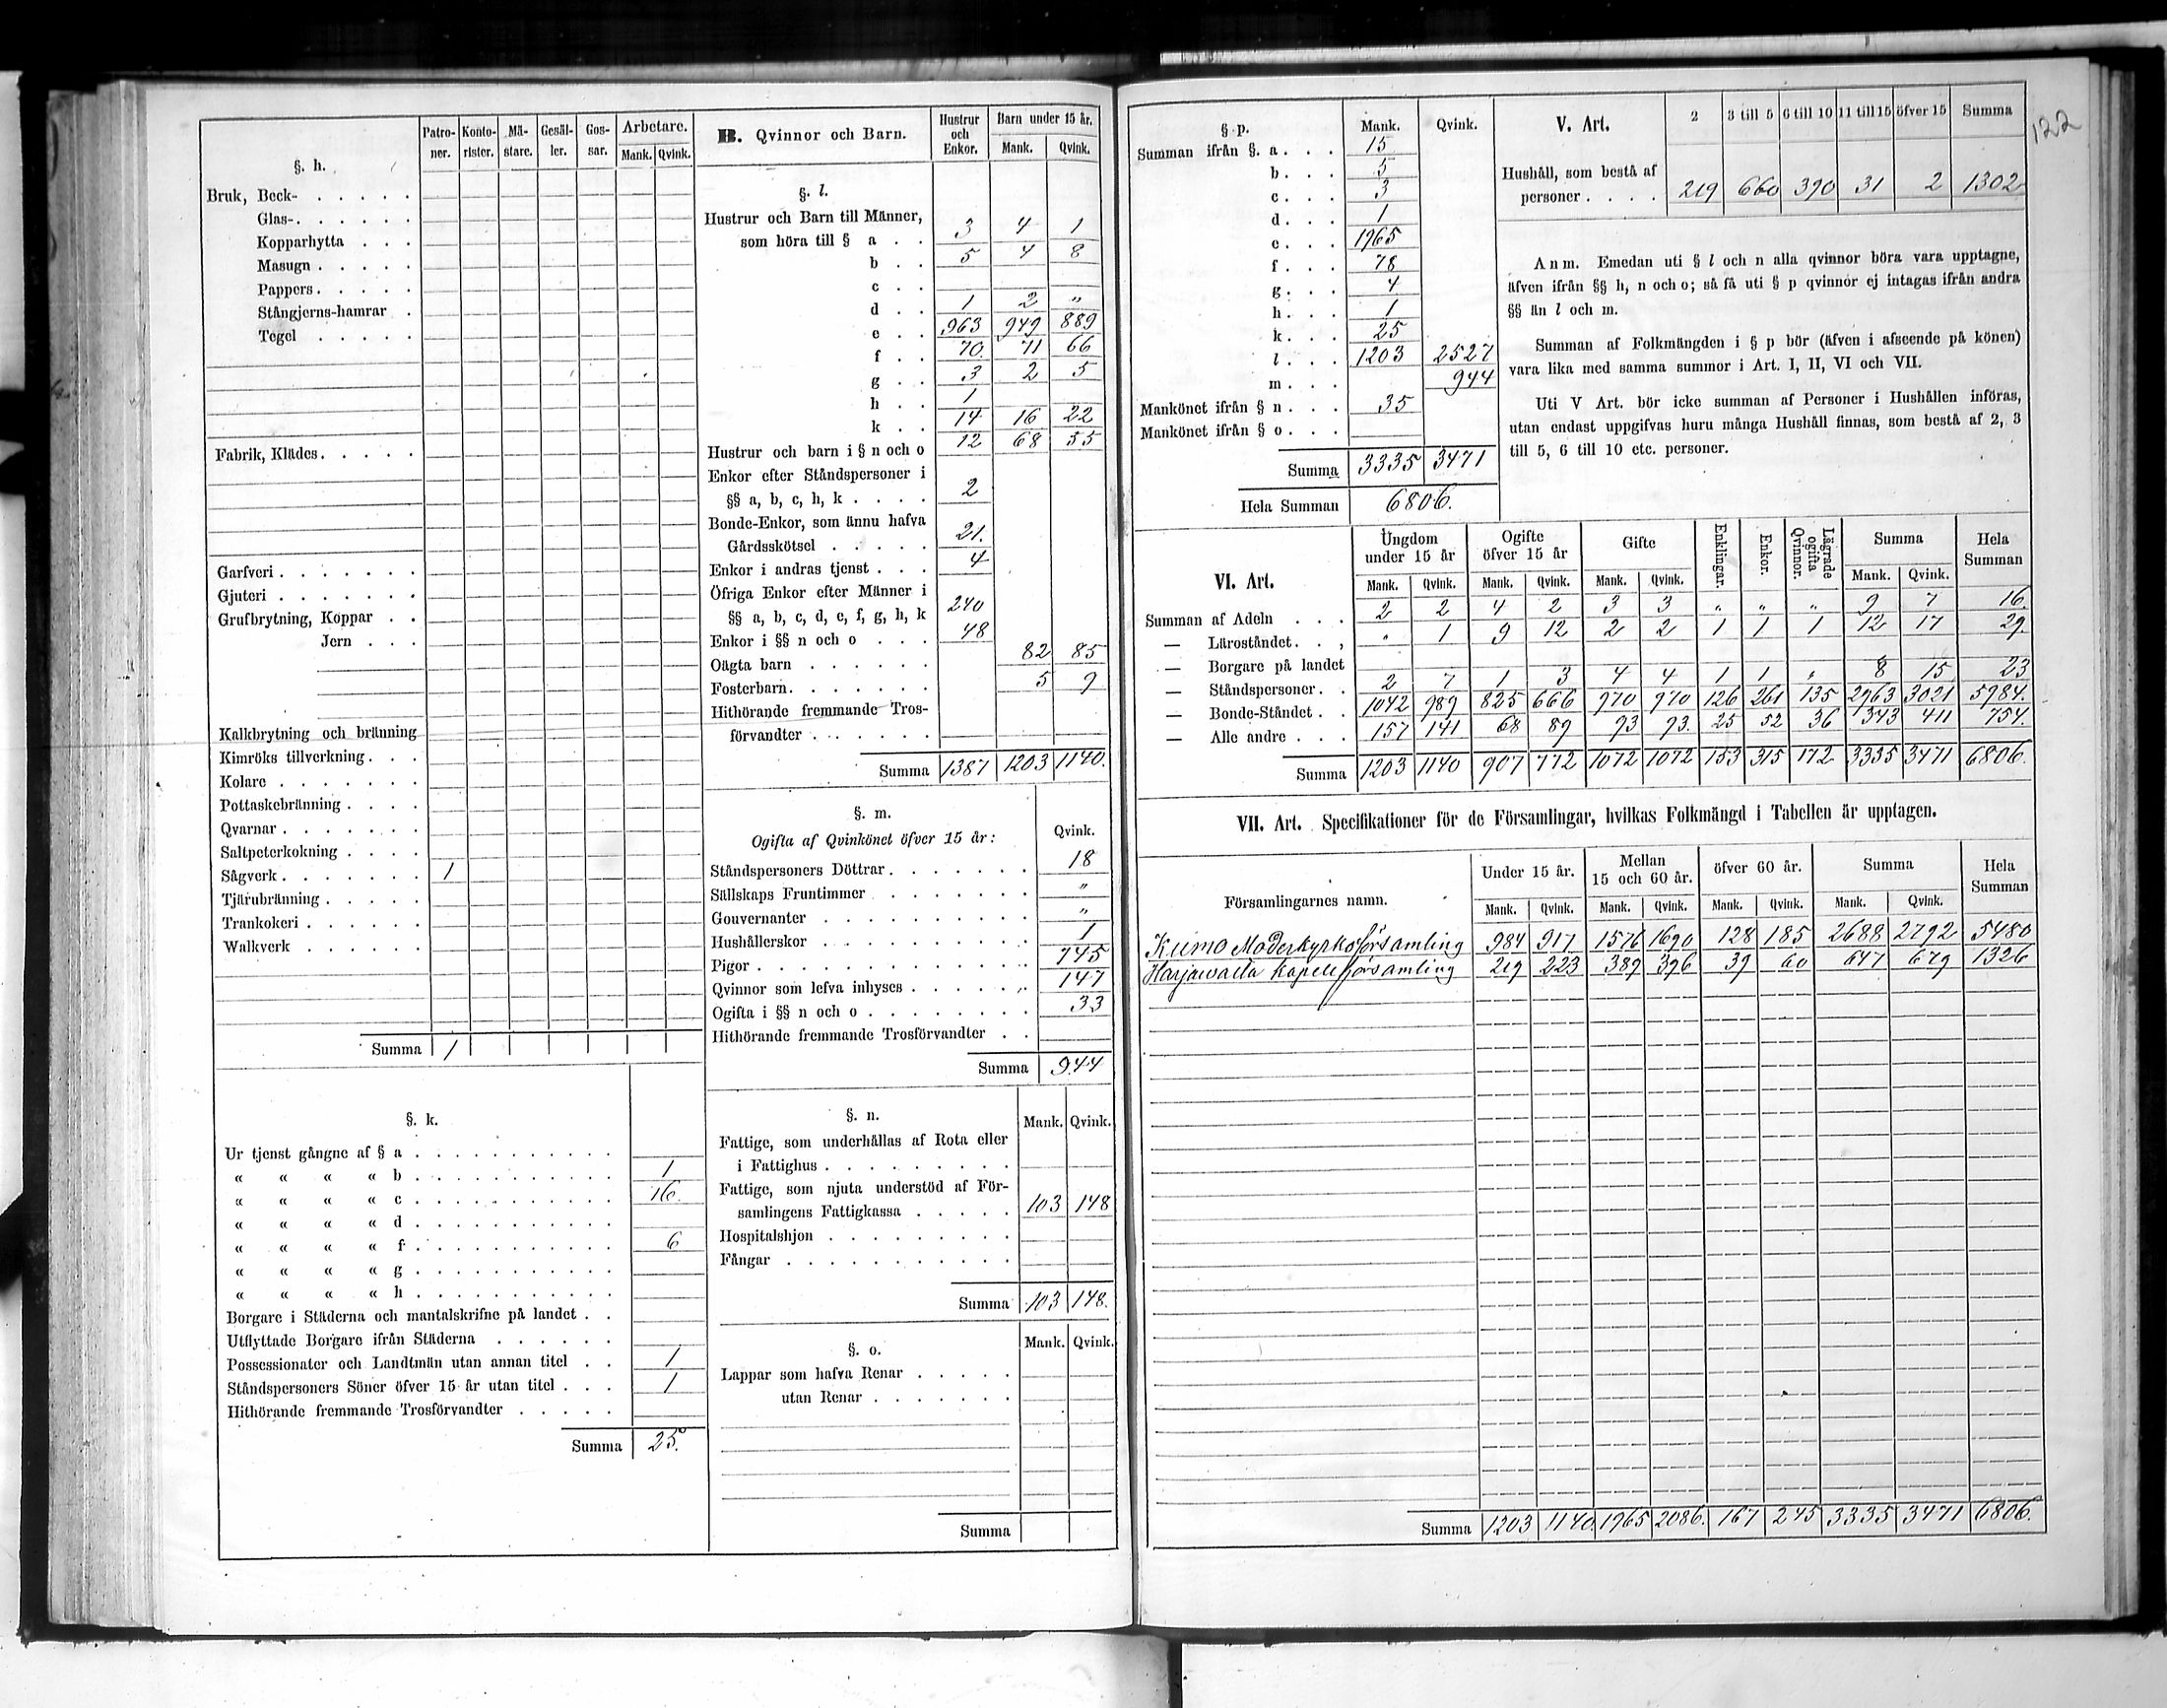 §. h.
Patro-ner. Konto-rister. Mä-stare. Gesäl-ler. Gos-sar. Arbetare. Mank. Qvink.
Bruk, Beck- . . . . .
Glas- . . . . .
Kopparhytta . . .
Masugn . . . . .
Pappers . . . . .
Stångjerns-hamrar .
Tegel . . . . .
Fabrik, Klädes . . . . .
Garfveri . . . . . . .
Gjuteri . . . . . . .
Grufbrytning, Koppar . .
Jern . . .
Kalkbrytning och bränning
Kimröks tillverkning . . .
Kolare . . . . . . .
Pottaskebränning . . . .
Qvarnar . . . . . . .
Saltpeterkokning . . . .
Sågverk . . . . . . . 1
Tjärubränning . . . . .
Trankokeri . . . . . .
Walkverk . . . . . .
Summa 1
§. k.
Ur tjenst gångne af § a . . . . . . . . . . .
« « « « b . . . . . . . . . . . 1
« « « « c . . . . . . . . . . . 16.
« « « « d . . . . . . . . . . .
« « « « f . . . . . . . . . . . 6
« « « « g . . . . . . . . . . .
« « « « h . . . . . . . . . . .
Borgare i Städerna och mantalskrifne på landet . .
Utflyttade Borgare ifrån Städerna . . . . . .
Possessionater och Landtmän utan annan titel . . 1
Ståndspersoners Söner öfver 15 år utan titel . . . 1
Hithörande fremmande Trosförvandter . . . . .
Summa 25.
B. Qvinnor och Barn. Hustrur och Enkor. Barn under 15 år. Mank. Qvink.
§. l.
Hustrur och Barn till Männer,
som höra till § a . . 3 4 1
b . . 5 4 8
c . .
d . . 1 2 "
e . . 963 949 889
f . . 70. 71 66
g . . 3 2 5
h . . 1
k . . 14 16 22
Hustrur och barn i § n och o 12 68 55
Enkor efter Ståndspersoner i
§§ a, b, c, h, k . . . . 2
Bonde-Enkor, som ännu hafva
Gårdsskötsel . . . . . 21.
Enkor i andras tjenst . . . 4
Öfriga Enkor efter Männer i
§§ a, b, c, d, e, f, g, h, k 240
Enkor i §§ n och o . . . 48
Oägta barn . . . . . . 82 85
Fosterbarn . . . . . . 5 9
Hithörande fremmande Tros-
förvandter . . . . . .
Summa 1387 1203 1140.
§. m.
Ogifta af Qvinkönet öfver 15 år: Qvink.
Ståndspersoners Döttrar . . . . . . 18
Sällskaps Fruntimmer . . . . . . . "
Gouvernanter . . . . . . . . . "
Hushållerskor . . . . . . . . . 1
Pigor . . . . . . . . . . . . 745
Qvinnor som lefva inhyses . . . . . . 147
Ogifta i §§ n och o . . . . . . . . 33
Hithörande fremmande Trosförvandter . .
Summa 944
§. n. Mank. Qvink.
Fattige, som underhållas af Rota eller
i Fattighus . . . . . . . . .
Fattige, som njuta understöd af För-
samlingens Fattigkassa . . . . . 103 148
Hospitalshjon . . . . . . . . .
Fångar . . . . . . . . . . .
Summa 103 148.
§. o. Mank. Qvink.
Lappar som hafva Renar . . . . .
utan Renar . . . . . . .
Summa
§ p. Mank. Qvink.
Summan ifrån §. a . . . 15
b . . . 5
c . . . 3
d . . . 1
e . . . 1965
f . . . 78
g . . . 4
h . . . 1
k . . . 25
l . . . 1203 2527
m . . . 944
Mankönet ifrån § n . . . 35
Mankönet ifrån § o . . .
Summa 3335 3471
Hela Summan 6806.
V. Art. 2 3 till 5 6 till 10 11 till 15 öfver 15 Summa
122
Hushåll, som bestå af
personer . . . . 219 660 390 31 2 1302
Anm. Emedan uti § l och n alla qvinnor böra vara upptagne,
äfven ifrån §§ h, n och o; så få uti § p qvinnor ej intagas ifrån andra
§§ än l och m.
Summan af Folkmängden i § p bör (äfven i afseende på könen)
vara lika med samma summor i Art. I, II, VI och VII.
Uti V Art. bör icke summan af Personer i Hushållen införas,
utan endast uppgifvas huru många Hushåll finnas, som bestå af 2, 3
till 5, 6 till 10 etc. personer.
VI. Art. Ungdom under 15 år Ogifte öfver 15 år Gifte Enklingar. Enkor. Lägrade ogifta Qvinnor. Summa Hela Summan
Mank. Qvink. Mank. Qvink. Mank. Qvink. Mank. Qvink.
Summan af Adeln . . . 2 2 4 2 3 3 " " " 9 7 16.
— Läroståndet . . , " 1 9 12 2 2 1 1 1 12 17 29.
— Borgare på landet
— Ståndspersoner . . 2 7 1 3 4 4 1 1 " 8 15 23
— Bonde-Ståndet . . 1042 989 825 666 970 970 126 261 135 2963 3021 5984.
— Alle andre . . . 157 141 68 89 93 93. 25 52 36 343 411 754.
Summa 1203 1140 907 772 1072 1072 153 315 172 3335 3471 6806.
VII. Art. Specifikationer för de Församlingar, hvilkas Folkmängd i Tabellen är upptagen.
Församlingarnes namn. Under 15 år. Mellan 15 och 60 år. öfver 60 år. Summa Hela Summan
Mank. Qvink. Mank. Qvink. Mank. Qvink. Mank. Qvink.
Kumo Moderkyrkoförsamling 984 917 1576 1690 128 185 2688 2792 5480
Harjawalta kapellförsamling 219 223 389 396 39 60 647 679 1326
Summa 1203 1140. 1965 2086. 167 245 3335 3471 6806.